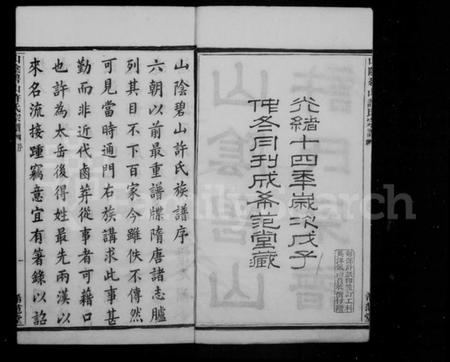 光緒十四年歲次戊子
仲冬月刊成希范堂藏
山陰碧山許氏族譜序
六朝以前最重譜牒隋唐諸志臚
列其目不下百家今雖佚不傳然
可見當時通門右族講求此事甚
勤而非近代鹵莽從事者可藉口
也許為太岳後得姓最先兩漢以
來名流接踵竊意宜有箸錄以詔
山陰碧山許氏宗譜